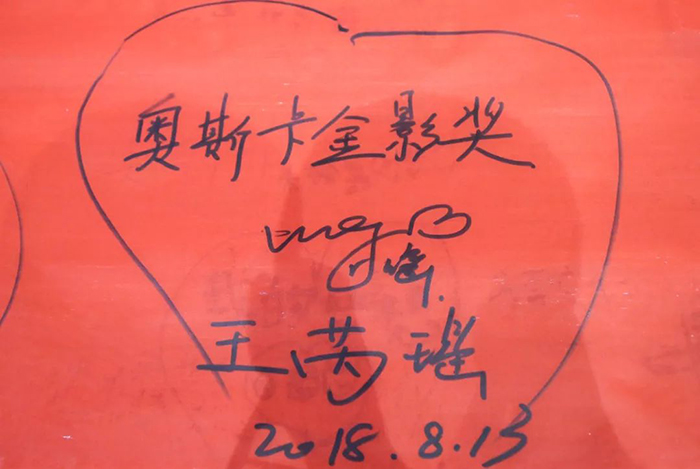 奥斯卡金影奖
王芮瑶
2018.8.13